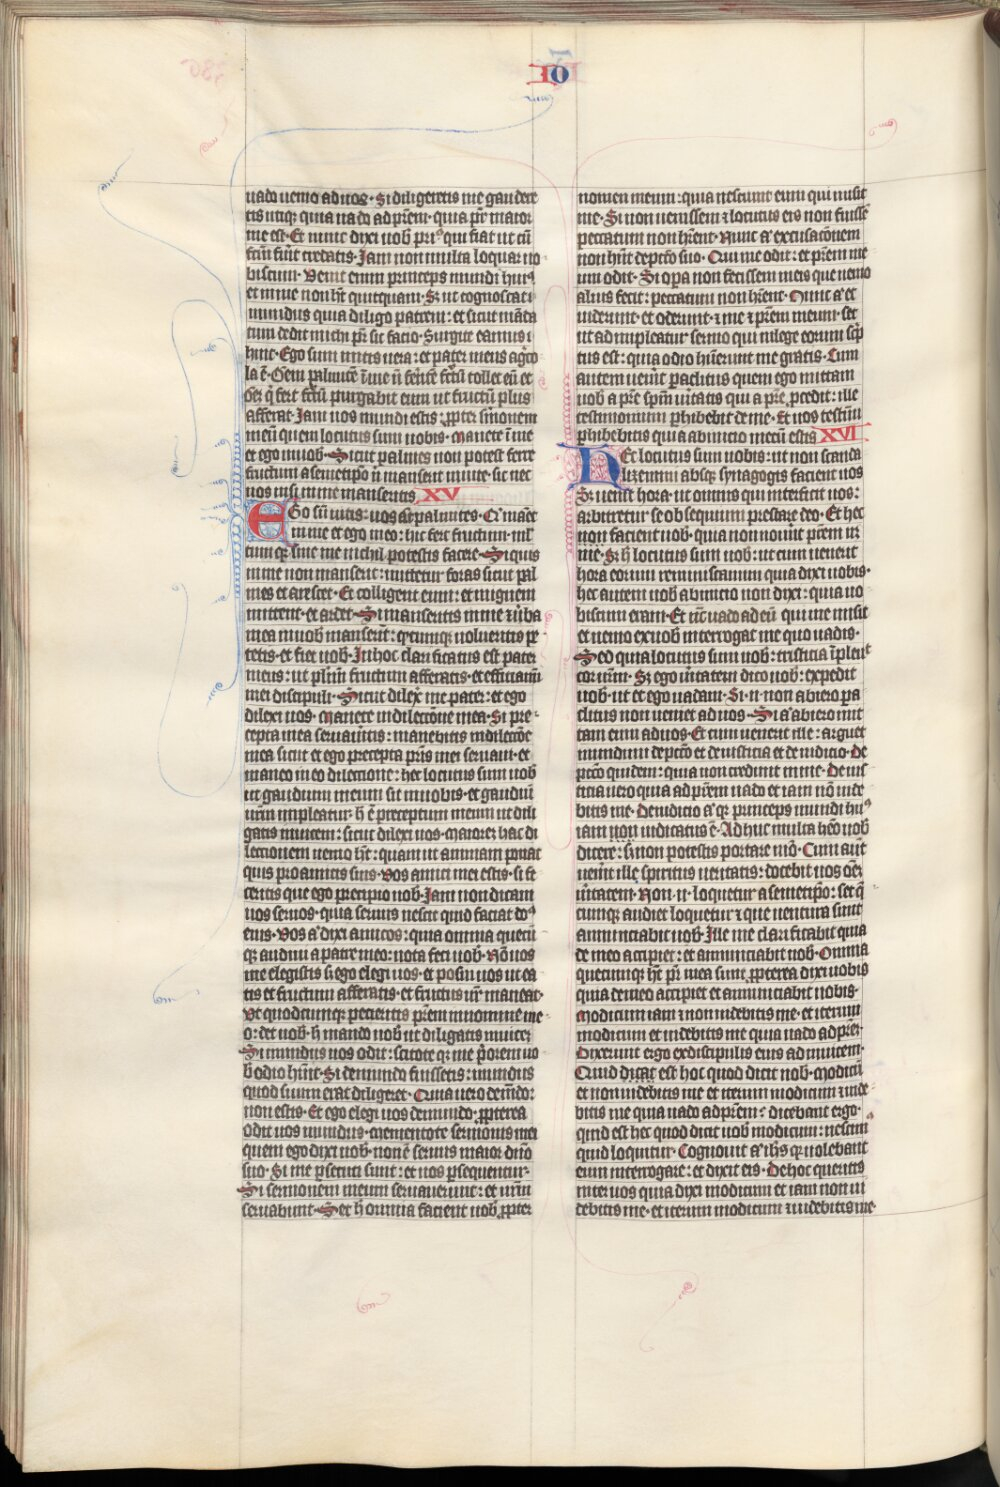 IO
uado uenio ad uos · Si diligeretis me gaudere
tis utiqꝫ quia uado ad p̄rem · quia pr̄ maior
me est · Et nunc dixi uob̄ pri⁹ qui fiat ut cū
fc̄m fu̅it credatis · Jam non multa loquar uo
biscum · Venit enim princeps mundi hui⁹
et in me non ht̄ quitquam · Sꝫ ut cognoscat
mundus quia diligo patrem : et sicut māda
tum dedit michi pr̄ sic facio · Surgite eamus
hinc · Ego sum uitis uera : et pater meus ag̅co
la ē · Oēm palmitē in me n̄ ferētē fc̄tū tollet eū et
oēꝫ q̄ fert fc̄tū purgabit eum ut fructū plus
afferat · Jam uos mundi estis : ꝓpter s̄monem
meū quem locutus sum uobis · Manete ī me
et ego in uob̄ · Sicut palmes non potest ferre
fructum a semetip̄o n̄ manserit in uite · sic nec
uos nisi in me manseritis XV
Ego sū uitis · uos āt palmites · Q̄i manet
in me et ego in eo : hic fert fructum mul
tum qꝫ sine me nichil potestis facere · Siquis
in me non manserit : mittetur foras sicut pal
mes et arescet · Et colligent eum : et in ignem
mittent · et ardet · Si manseritis in me ⁊ ūba
mea in uob̄ manserīt : q̄cumqꝫ uolueritis pe
tetis · et fiet uob̄ · In hoc clarificatus est pater
meus : ut plīm fructum afferatis · et efficiamī
mei discipuli · Sicut dilex̄ me pater : et ego
dilexi uos · Manete in dilectōne mea · Si pre
cepta mea seruaūitis : manebitis in dilectōe
mea sicut et ego precepta pr̄is mei seruaui · et
maneo in eo dilectione : hec locutus sum uob̄
ut gaudium meum sit in uobis · et gaudiū
ur̄m impleatur · h̄ ē preceptum meum ut dili
gatis inuicem : sicut dilexi uos · Maiorē hac di
lectionem nemo ht̄ : quam ut animam ponat
quis pro amicis suis · Vos amici mei estis · si fe
ceritis que ego precipio uob̄ · Jam non dicam
uos seruos · quia seruus nescit quid faciat do⁹
eius · Vos ā dixi amicos : quia omnia quecū
qꝫ audiui a patre meo : nota feci uob̄ · Nō uos
me elegistis sꝫ ego elegi uos · et posui uos ut ea
tis et fructum afferatis · et fructus ur̄ maneat ·
Vt quodcumqꝫ petieritis p̄rem in nomine me
o : det uob̄ · h̄ mando uob̄ ut diligatis inuicē
Si mundus uos odit : scitote qꝫ me p̄orem uo
b̄ odio hūit · Si de mundo fuissetis : mundus
quod suum erat diligeret · Quia uero de mūdo
non estis · Et ego elegi uos de mundo · ꝓpterea
odit uos mundus · Mementote sermonis mei
quem ego dixi uob̄ · non ē seruus maior dn̄o
suo · Si me ꝑsecuti sunt : et uos ꝑsequentur ·
Si sermonem meum seruauerunt : et ur̄m
seruabunt · Set h̄ omnia facient uob̄ ꝓpter
nomen meum : quia nesciunt eum qui misit
me · Si non uenissem ⁊ locutus eis non fuissē
peccatum non hr̄ent · Nunc ā excusacōnem
non hn̄t de pctō suo · Qui me odit : et p̄rem me
um odit · Si oꝑa non fecissem in eis que nemo
alius fecit : peccatum non hr̄ent · Nunc ā et
uiderunt · et oderunt · ⁊ me ⁊ p̄rem meum · set
ut adimpleatur sermo qui in lege eorum scp̄
tus est : quia odio hūerunt me gratis · Cum
autem uen̄it paclitus quem ego mittam
uob̄ a pr̄e sp̄m uitatis qui a pr̄e ꝓcedit : ille
testimonium phibebit de me · Et uos testīu
phibebitis quia ab inicio mecū estis XVI
Hec locutus sum uobis : ut non scanda
lizemini absqꝫ synagogis facient uos
Sꝫ uenit hora · ut omnis qui interficit uos :
arbitretur se obsequium prestare deo · Et hec
facient uob̄ · quia non nouūt p̄rem nꝫ
me · Sꝫ h̄ locutus sum uob̄ : ut cum uenerit
hora eorum reminiscamini quia dixi uobis ·
hec autem uob̄ ab inicio non dixi : quia uo
biscum eram · Et n̄c uado ad eū qui me misit
et nemo ex uob̄ interrogat me quo uadis ·
Sed quia locutus sum uob̄ : tristicia īpleuit
cor ur̄m · Sꝫ ego uitatem dico uob̄ : expedit
uob̄ · ut et ego uadam · Si · n · non abiero pa
clitus non ueniet ad uos · Si ā abiero mit
tam eum ad uos · Et cum uenerit ille : arguet
mundum de pctō et de iusticia et de iudicio · De
pctō quidem : quia non credunt in me · De ius
ticia uero quia ad p̄rem uado et iam nō uide
bitis me · De iudicio ā qꝫ princeps mundi hui⁹
iam iudicatus ē · Adhuc multa hēo uob̄
dicere : s̄ non potestis portare mō · Cum aūt
uen̄it ille spiritus ueritatis : docebit uos oēꝫ
uitatem · Non · n · loquetur a semetip̄o : set q̄
cumqꝫ audiet loquetur ⁊ que uentura sunt
annunciabit uob̄ · Ille me clarificabit quia
de meo accipiet : et annunciabit uob̄ · Omnia
quecumqꝫ ht̄ pr̄ mea sunt ꝓpterea dixi uobis
quia de meo accipiet et annunciabit uobis ·
Modicum iam ⁊ non uidebitis me · et iterum
modicum et uidebitis me quia uado ad p̄rem
Dixerunt ergo ex discipulis eius ad inuicem ·
Quid est hoc quod dicit nob̄ · Modicū
et non uidebitis me et iterum modicum ⁊ uide
bitis me quia uado ad p̄rem : dicebant ergo ·
quid est hec quod dicit uob̄ modicum : nescim⁹
quid loquitur · Cognouit ā ih̄s qꝫ uolebant
eum interrogare : et dixit eis · De hoc queritis
inter uos quia dixi modicum et iam non ui
debitis me · et iterum modicum ⁊ uidebitis me ·